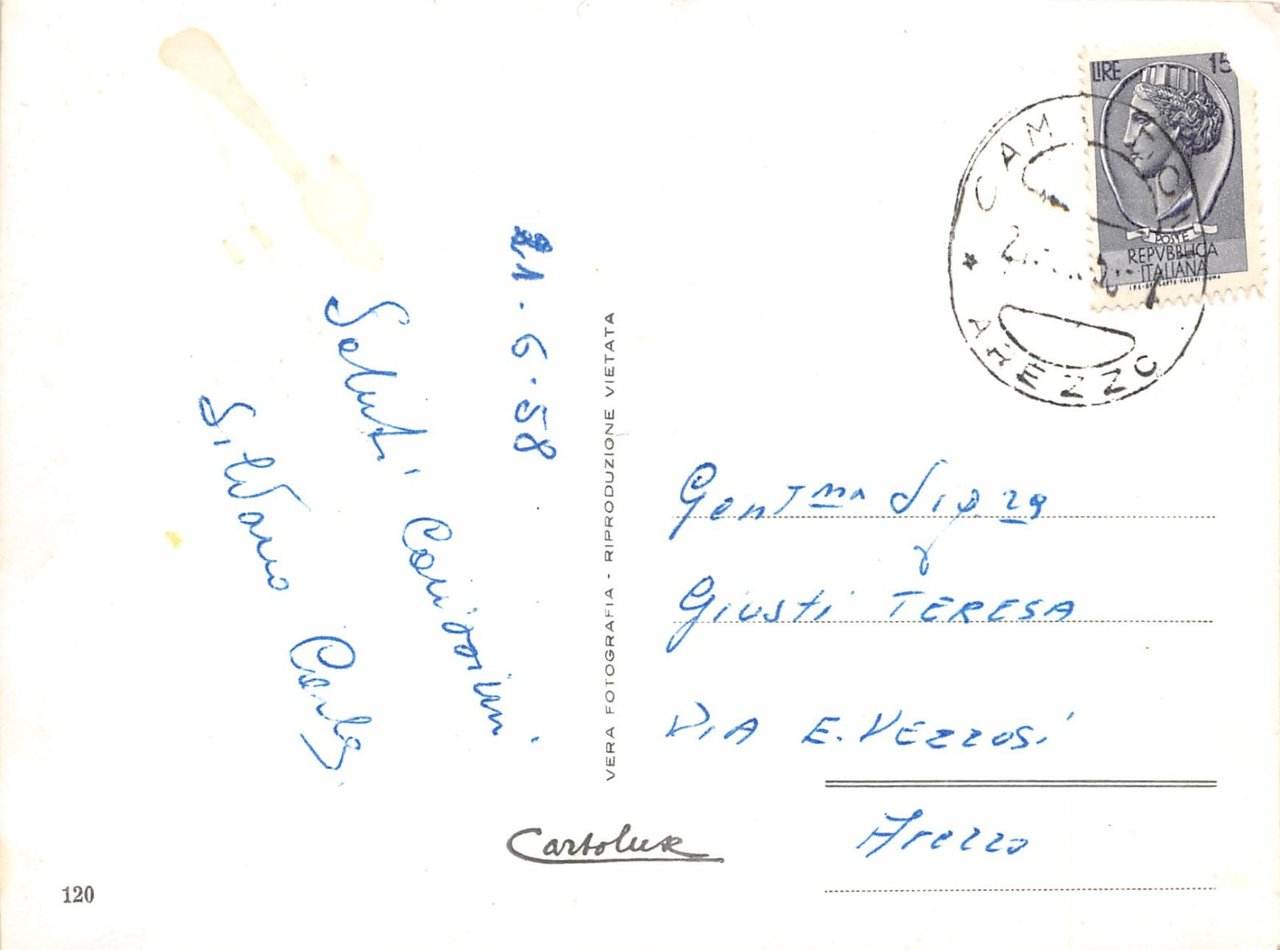 21.6.58
Saluti Carissimi
Silvano Carla
VERA FOTOGRAFIA - RIPRODUZIONE VIETATA
Cartolux
120
LIRE 15
POSTE
REPVBBLICA
ITALIANA
AREZZO
Gent.ma Sig.ra
Giusti TERESA
VIA E. VEZZOSI
Arezzo